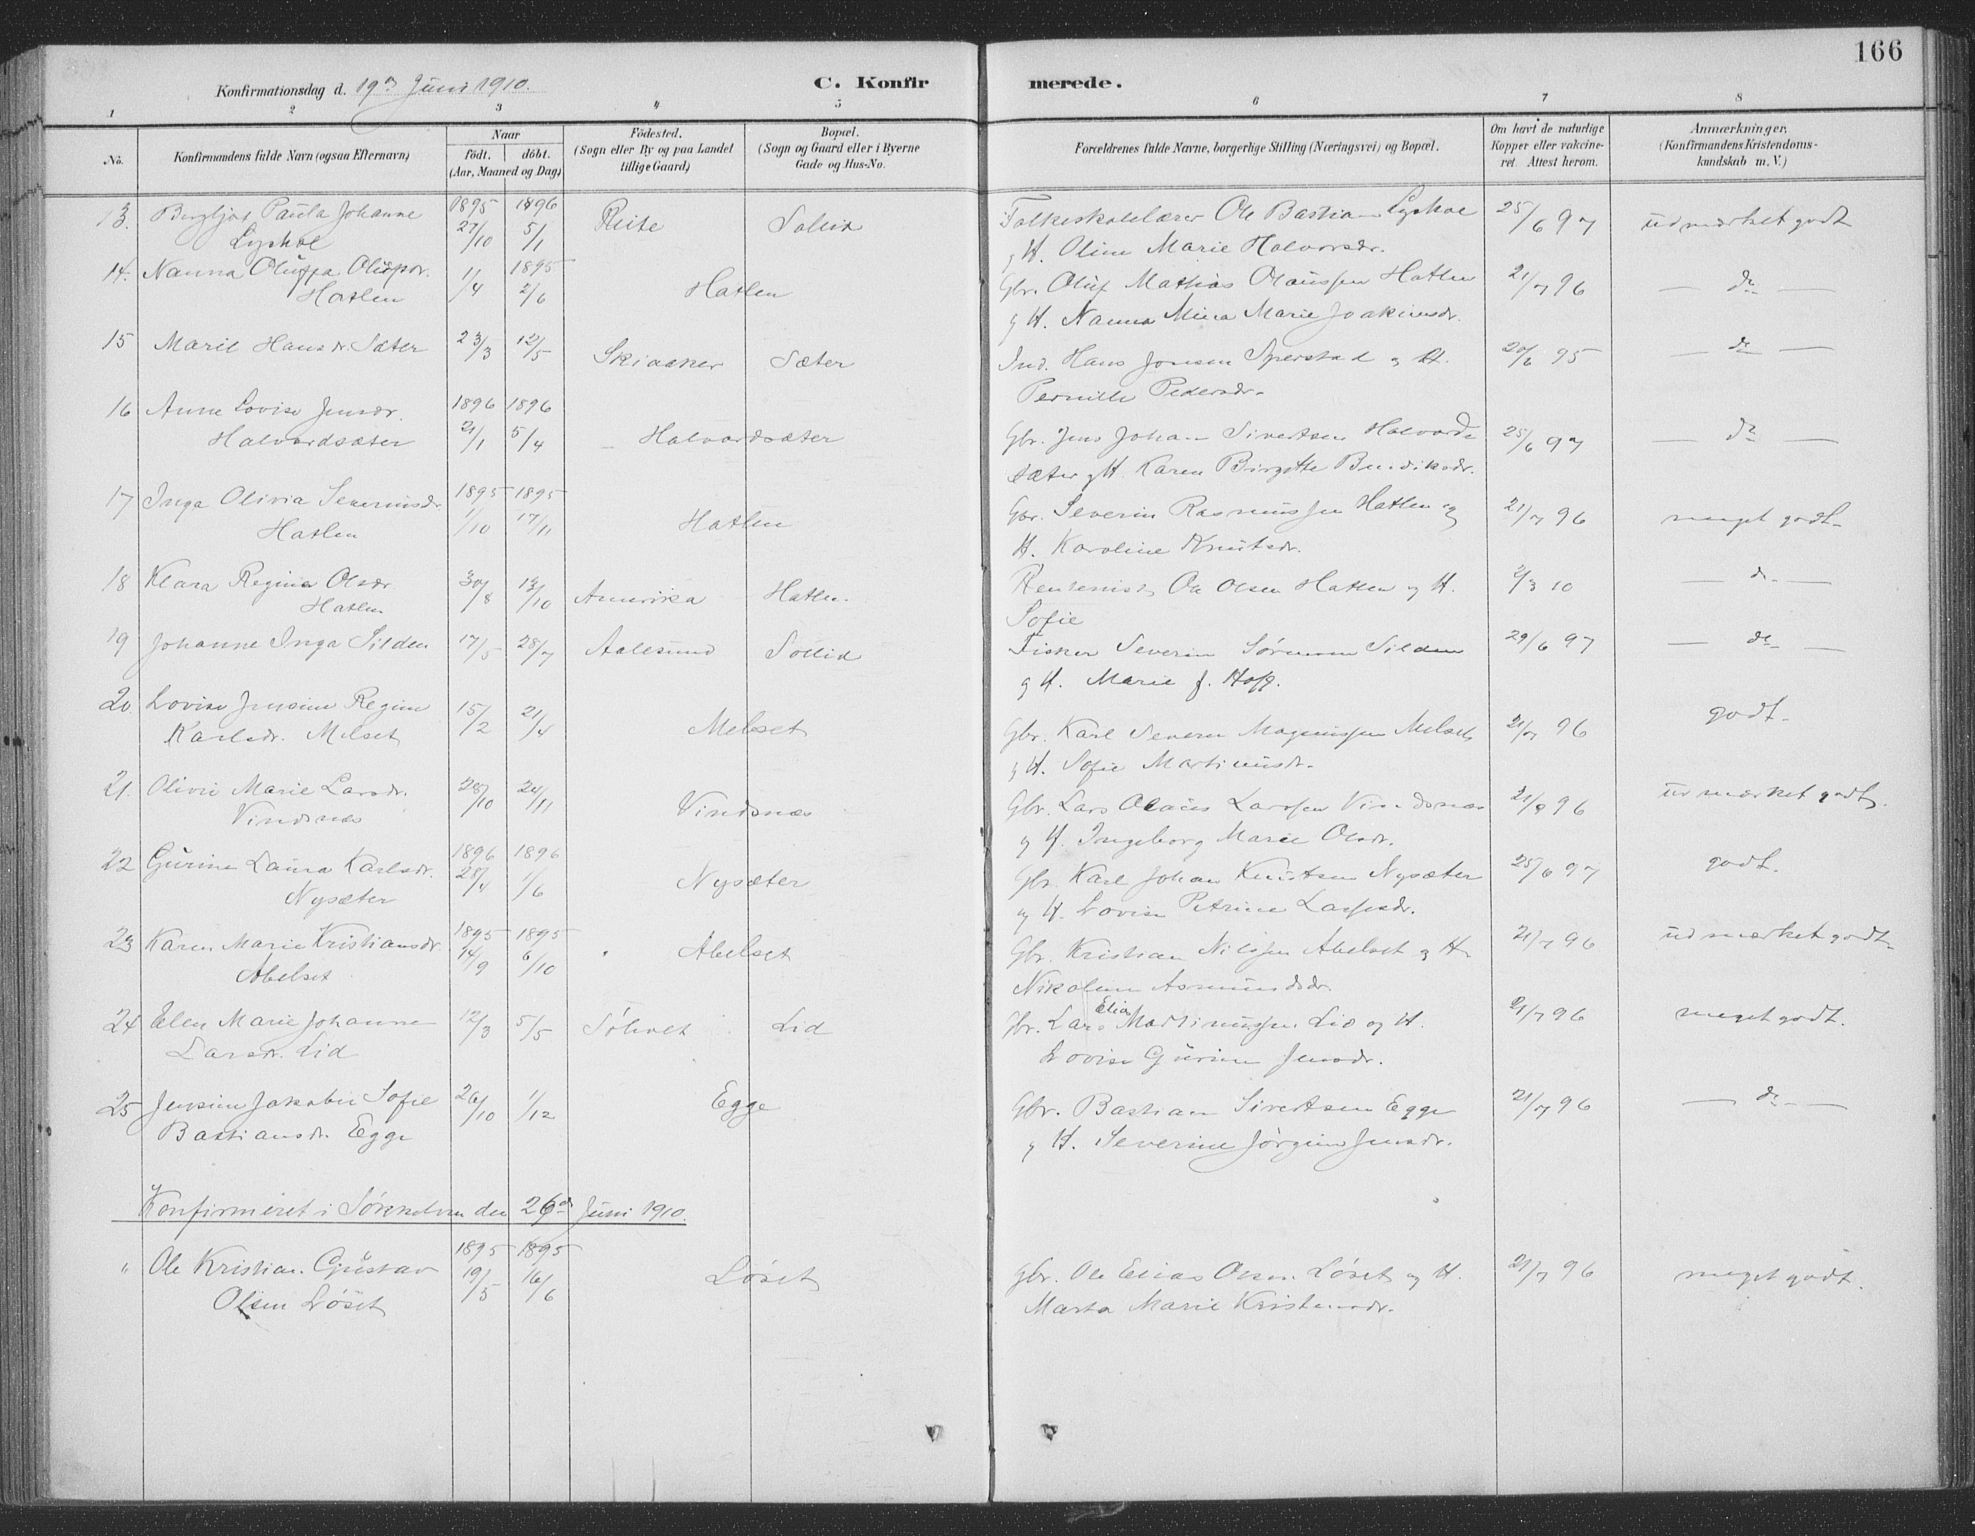 166
Konfirmationsdag d. 19de Juni 1910.
C. Konfirmerede.
1 2 3 4 5 6 7 8
No. Konfirmandens fulde Navn (ogsaa Efternavn) Naar födt. döbt. (Aar, Maaned og Dag) Födested. (Sogn eller By og paa Landet tillige Gaard) Bopæl. (Sogn og Gaard eller i Byerne Gade og Hus-No. Forældrenes fulde Navne, borgerlige Stilling (Næringsvei) og Bopæl. Om havt de naturlige Kopper eller vakcineret. Attest herom. Anmærkninger. (Konfirmandens Kristendomskundskab m. V.)
13. Bergljot Paula Johanne 1895 27/10 1896 5/1 Reite Sollid Folkeskolelærer Ole Bastian Lyshol 25/6 97 udmærket godt
Lyshol g H. Oline Marie Halvorsdr.
14. Nanna Oluffa Olufsdr. 1/4 1895 2/6 Hatlen Gbr. Oluf Mathias Olaussen Hatlen 21/7 96 — do —
Hatlen g H. Nanna Mina Marie Joakimsdr.
15 Marie Hansdr. Sæter 23/3 12/5 Skiaaker Sæter Ind. Hans Jonsen Sperstad og H. 20/6 95 — do —
Pernille Pedersdr.
16 Anne Lovise Jensdr. 1896 21/1 1896 5/4 Halvardsæter Gbr. Jens Johan Sivertsen Halvards 25/6 97 — do —
Halvardsæter sæter g H. Karen Birgitte Bendiksdr.
17 Inga Olivia Severinsdr. 1895 1/10 1895 17/11 Hatlen Gbr. Severin Rasmussen Hatlen og 21/7 96 meget godt
Hatlen H. Karoline Knutsdr.
18 Klara Regina Olsdr. 30/8 13/10 Amerika Hatlen. Rentenist Ole Olsen Hatlen og H. 2/3 10 — do —
Hatlen Sofie
19 Johanne Inga Silden 17/5 28/7 Aalesund Sollid Fisker Severin Sørensen Silden 29/6 97 — do —
g H. Marie f. Hoff.
20. Lovise Jensine Regine 15/2 21/4 Melset Gbr. Karl Severin Magnussen Melset 21/7 96 godt.
Karlsdr. Melset g H. Sofie Martinusdr.
21. Olivie Marie Larsdr. 28/10 24/11 Vindsnæs Gbr. Lars Olaus Larssen Vindsnæs 21/7 96 udmærket godt.
Vindsnæs g H. Ingeborg Marie Olsdr.
22 Gurine Laura Karlsdr. 1896 28/4 1896 1/6 Nysæter Gbr. Karl Johan Knutsen Nysæter 25/6 97 godt.
Nysæter og H. Lovise Petrine Larssdr.
23 Karen Marie Kristiansdr. 1895 14/9 1895 6/10 Abelset Gbr. Kristian Nilssen Abelset og H. 21/7 96 udmærket godt
Abelset Nikoline Asmundsdr.
24 Elen Marie Johanne 12/3 5/5 Søholt Lid Gbr. Lars Elias Martinussen Lid og H. 21/7 96 meget godt.
Larsdr. Lid Lovise Gurine Jensdr.
25 Jensine Jakobie Sofie 26/10 1/12 Egge Gbr. Bastian Sivertsen Egge 21/7 96 — do —
Bastiansdr. Egge g H. Severine Jørgine Jensdr.
Konfirmeret i Sørkelven den 26de Juni 1910.
" Ole Kristian Gustav 1895 19/5 1895 16/6 Løset Gbr. Ole Elias Olsen Løset og H. 21/7 96 meget godt.
Olsen Løset Marta Marie Kristensdr.